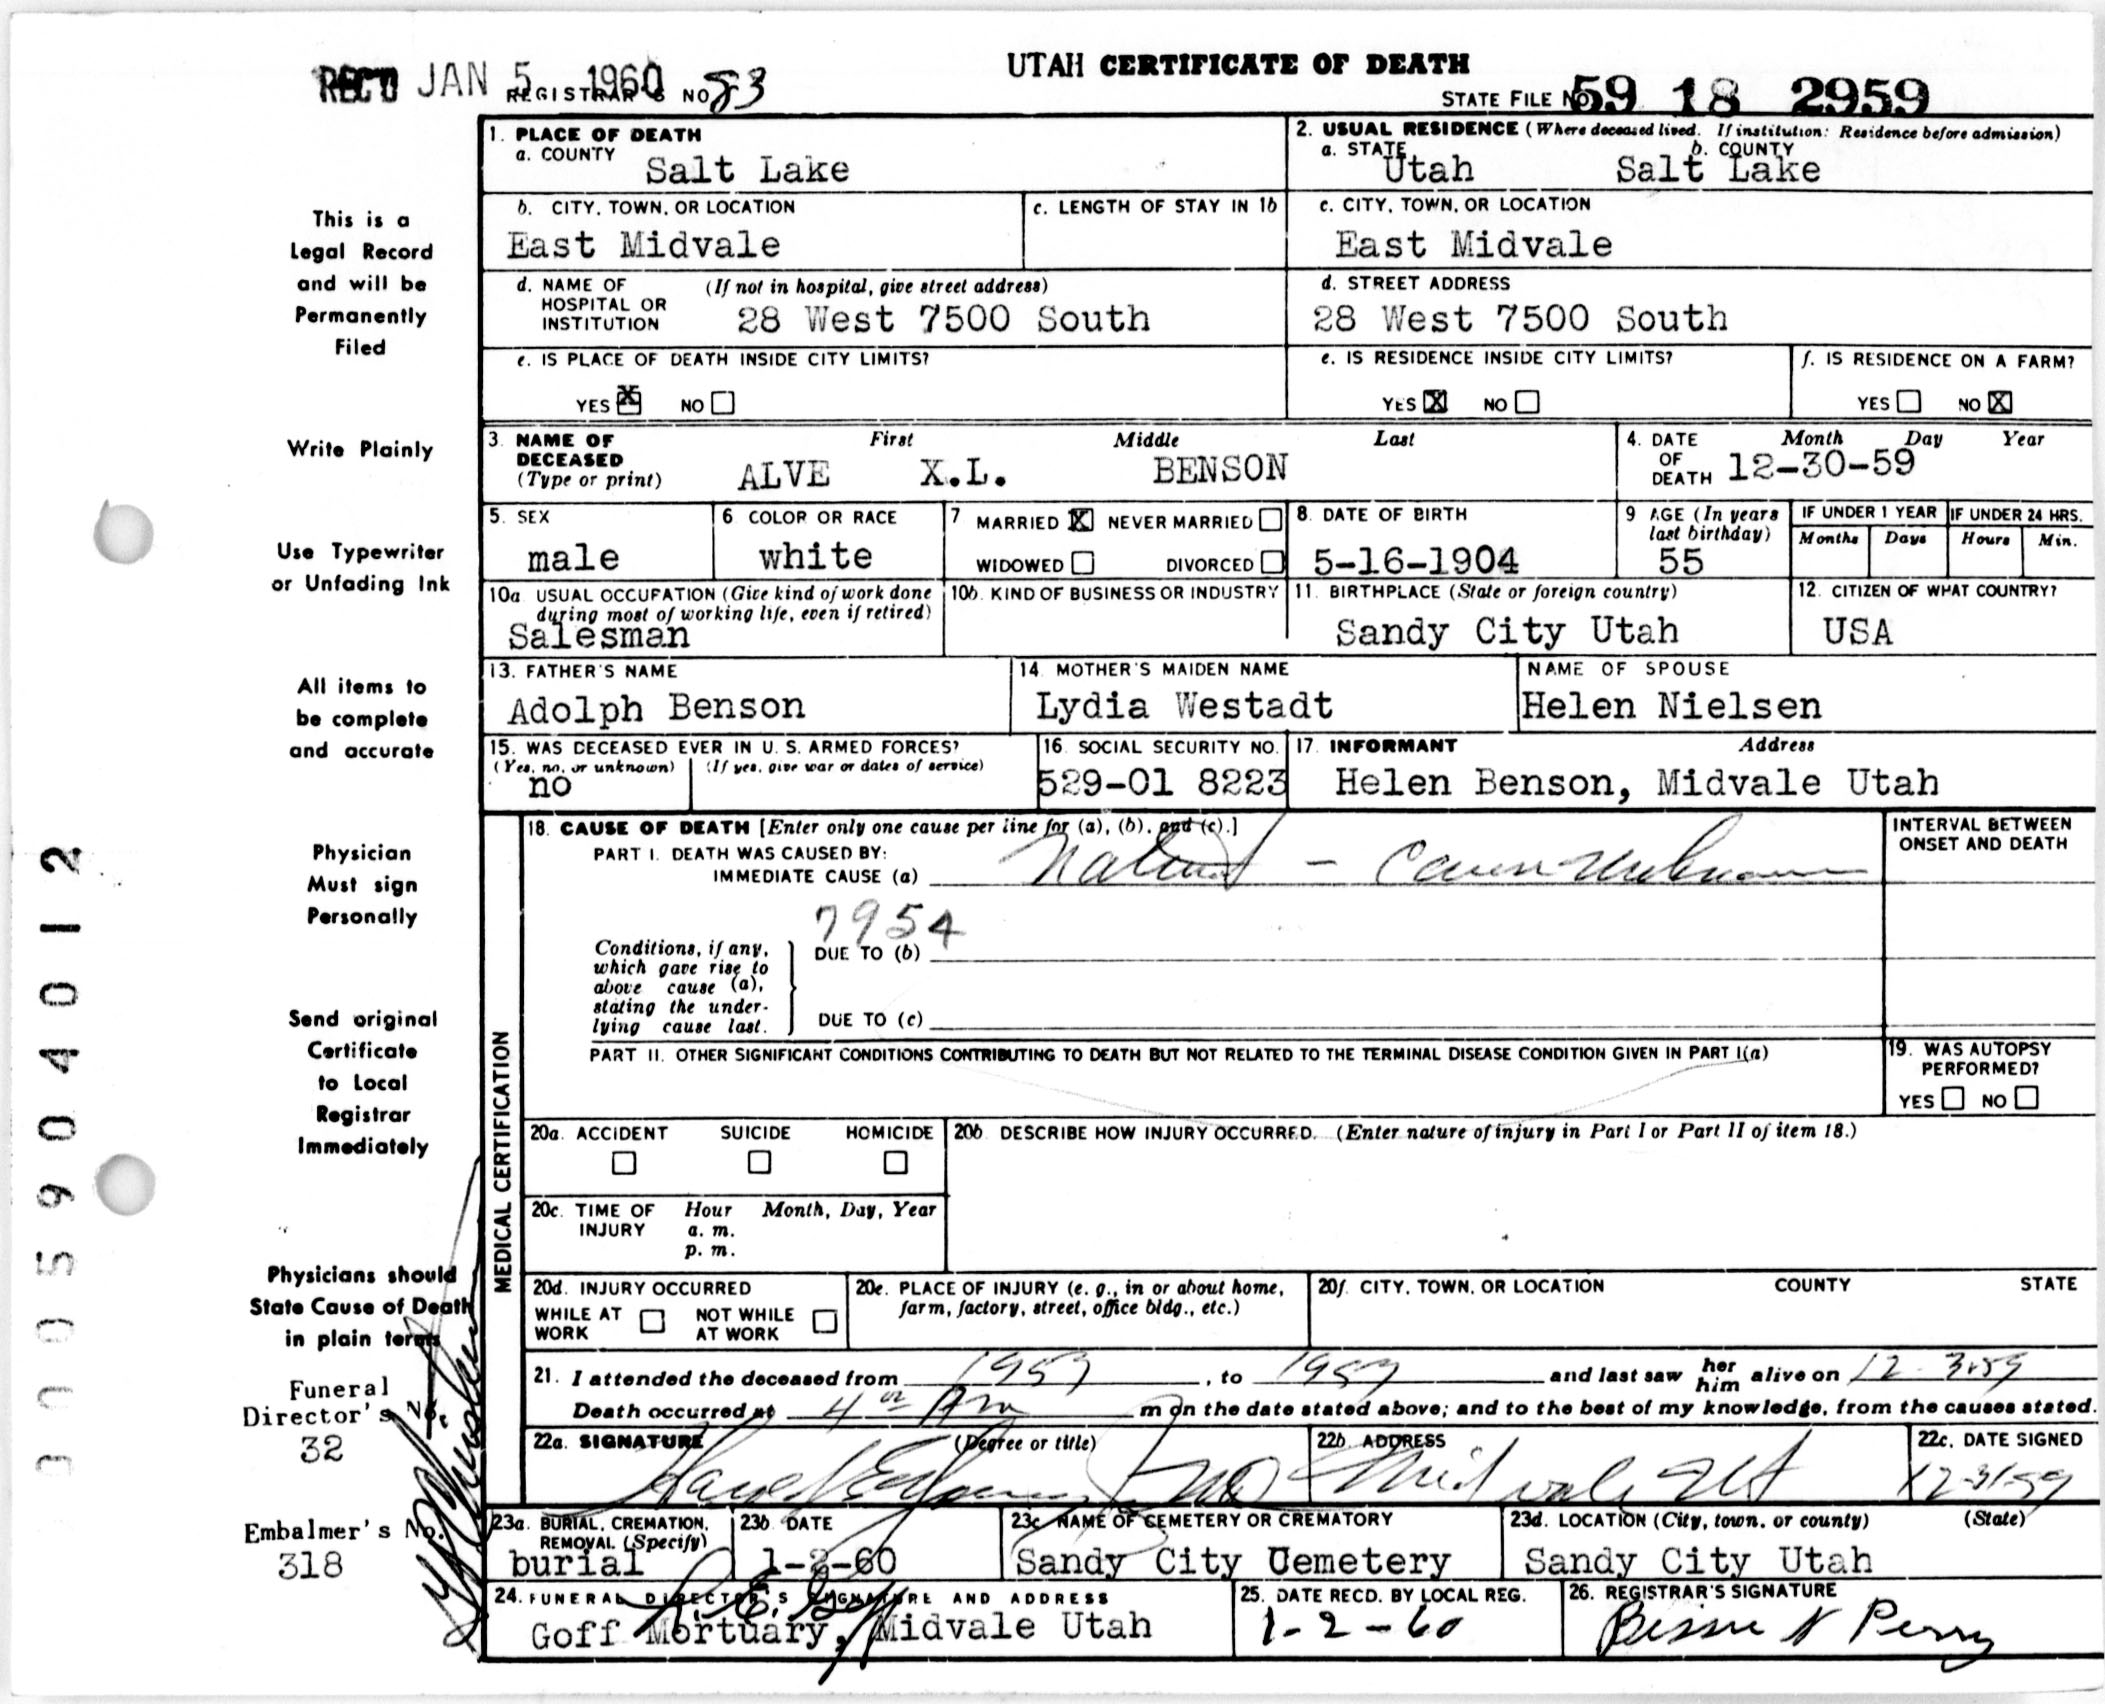 UTAH CERTIFICATE OF DEATH
REC'D JAN 5 1960 REGISTRAR'S NO. 83
STATE FILE NO. 59 18 2959
This is a
Legal Record
and will be
Permanently
Filed
Write Plainly
Use Typewriter
or Unfading Ink
All items to
be complete
and accurate
Physician
Must sign
Personally
Send original
Certificate
to Local
Registrar
Immediately
Physicians should
State Cause of Death
in plain terms
Funeral
Director's No.
32
Embalmer's No.
318
1. PLACE OF DEATH
a. COUNTY Salt Lake
2. USUAL RESIDENCE (Where deceased lived. If institution: Residence before admission)
a. STATE Utah b. COUNTY Salt Lake
b. CITY, TOWN, OR LOCATION
East Midvale
c. LENGTH OF STAY IN 1b
c. CITY, TOWN, OR LOCATION
East Midvale
d. NAME OF HOSPITAL OR INSTITUTION (If not in hospital, give street address)
28 West 7500 South
d. STREET ADDRESS
28 West 7500 South
e. IS PLACE OF DEATH INSIDE CITY LIMITS?
YES X NO
e. IS RESIDENCE INSIDE CITY LIMITS?
YES X NO
f. IS RESIDENCE ON A FARM?
YES NO X
3. NAME OF DECEASED (Type or print)
First Middle Last
ALVE X.L. BENSON
4. DATE OF DEATH Month Day Year
12-30-59
5. SEX
male
6 COLOR OR RACE
white
7 MARRIED X NEVER MARRIED
WIDOWED DIVORCED
8. DATE OF BIRTH
5-16-1904
9 AGE (In years last birthday)
55
IF UNDER 1 YEAR
Months Days
IF UNDER 24 HRS.
Hours Min.
10a. USUAL OCCUPATION (Give kind of work done during most of working life, even if retired)
Salesman
10b. KIND OF BUSINESS OR INDUSTRY
11. BIRTHPLACE (State or foreign country)
Sandy City Utah
12. CITIZEN OF WHAT COUNTRY?
USA
13. FATHER'S NAME
Adolph Benson
14. MOTHER'S MAIDEN NAME
Lydia Westadt
NAME OF SPOUSE
Helen Nielsen
15. WAS DECEASED EVER IN U. S. ARMED FORCES?
(Yes, no, or unknown) (If yes, give war or dates of service)
no
16. SOCIAL SECURITY NO.
529-01 8223
17. INFORMANT Address
Helen Benson, Midvale Utah
MEDICAL CERTIFICATION
18. CAUSE OF DEATH [Enter only one cause per line for (a), (b), and (c).]
PART I. DEATH WAS CAUSED BY:
IMMEDIATE CAUSE (a) Natural - Cause Unknown
INTERVAL BETWEEN ONSET AND DEATH
7954
Conditions, if any, which gave rise to above cause (a), stating the underlying cause last.
DUE TO (b)
DUE TO (c)
PART II. OTHER SIGNIFICANT CONDITIONS CONTRIBUTING TO DEATH BUT NOT RELATED TO THE TERMINAL DISEASE CONDITION GIVEN IN PART I(a)
19. WAS AUTOPSY PERFORMED?
YES NO
20a. ACCIDENT SUICIDE HOMICIDE
20b. DESCRIBE HOW INJURY OCCURRED. (Enter nature of injury in Part I or Part II of item 18.)
20c. TIME OF INJURY Hour Month, Day, Year
a. m.
p. m.
20d. INJURY OCCURRED
WHILE AT WORK NOT WHILE AT WORK
20e. PLACE OF INJURY (e. g., in or about home, farm, factory, street, office bldg., etc.)
20f. CITY, TOWN, OR LOCATION COUNTY STATE
21. I attended the deceased from 1959, to 1959 and last saw her him alive on 12-3-59
Death occurred at 4 00 Am m on the date stated above; and to the best of my knowledge, from the causes stated.
22a. SIGNATURE (Degree or title)
MD
22b. ADDRESS
Midvale Ut
22c. DATE SIGNED
12-31-59
23a. BURIAL, CREMATION, REMOVAL (Specify)
burial
23b. DATE
1-2-60
23c. NAME OF CEMETERY OR CREMATORY
Sandy City Cemetery
23d. LOCATION (City, town, or county) (State)
Sandy City Utah
24. FUNERAL DIRECTOR'S SIGNATURE AND ADDRESS
Goff Mortuary, Midvale Utah
25. DATE RECD. BY LOCAL REG.
1-2-60
26. REGISTRAR'S SIGNATURE
Bessie N Perry
0005904012